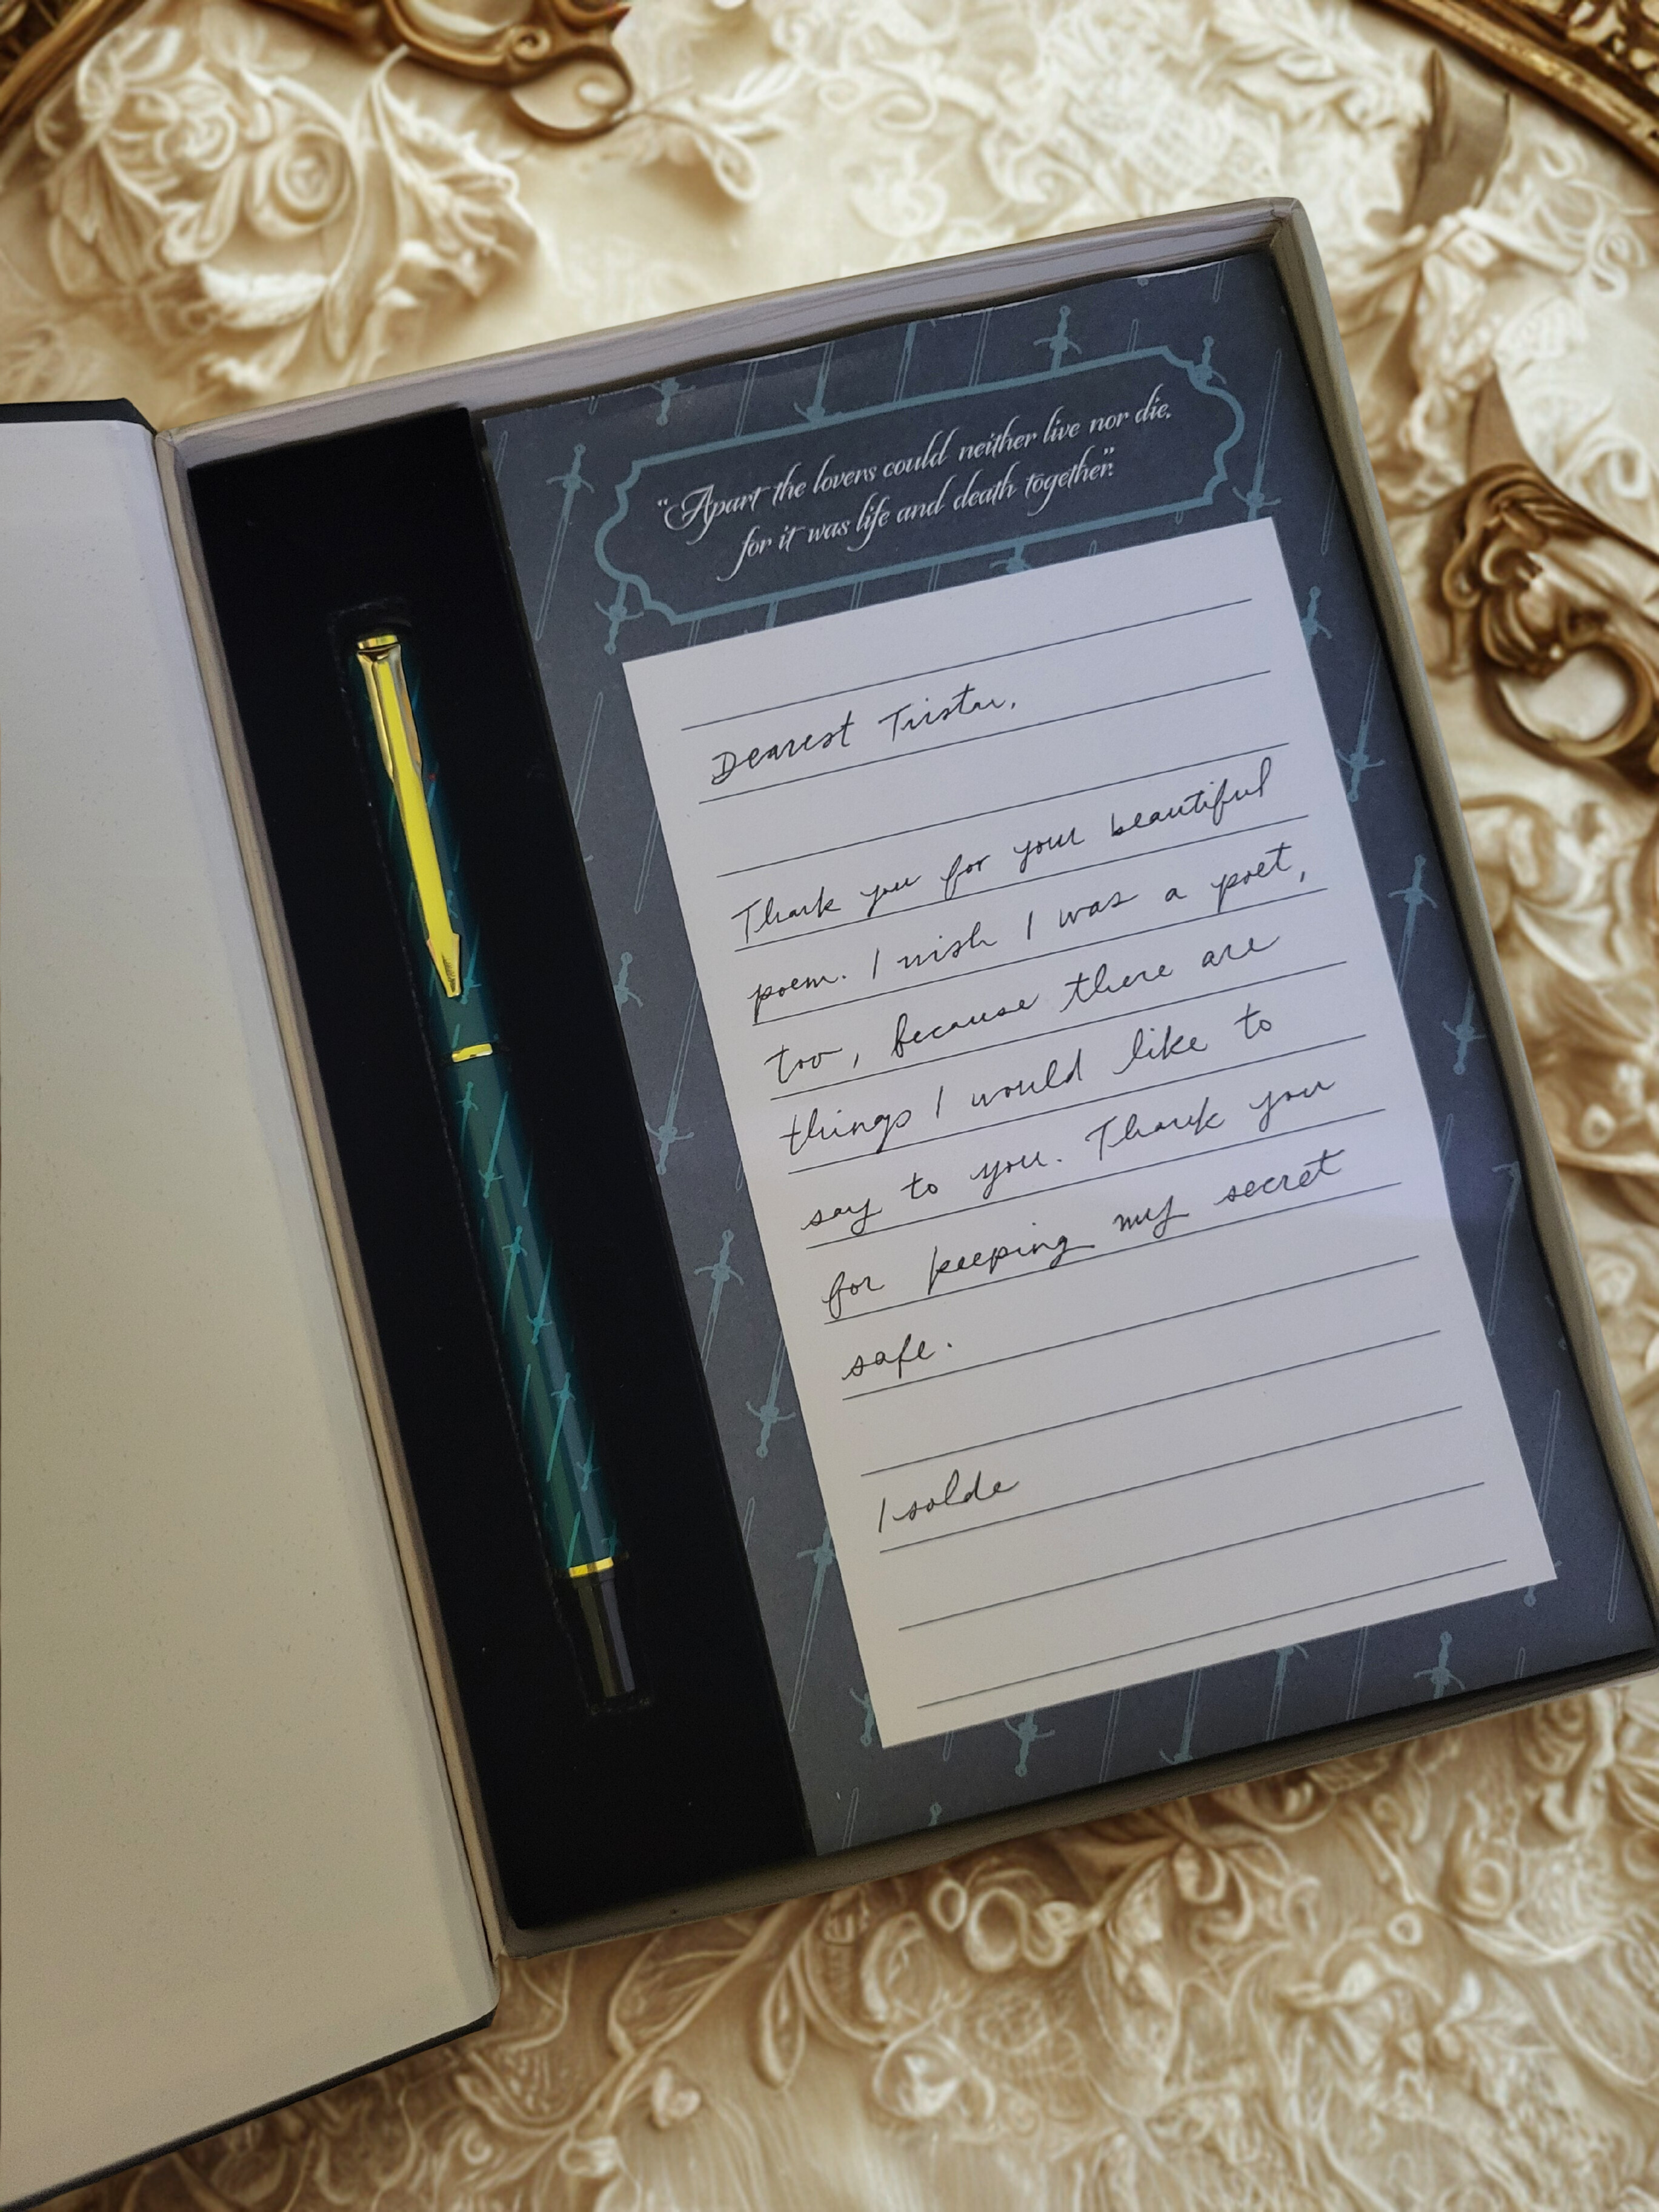 "Apart the lovers could neither live nor die,
for it was life and death together."
Dearest Tristan,
Thank you for your beautiful
poem. I wish I was a poet,
too, because there are
things I would like to
say to you. Thank you
for keeping my secret
safe.
Isolde